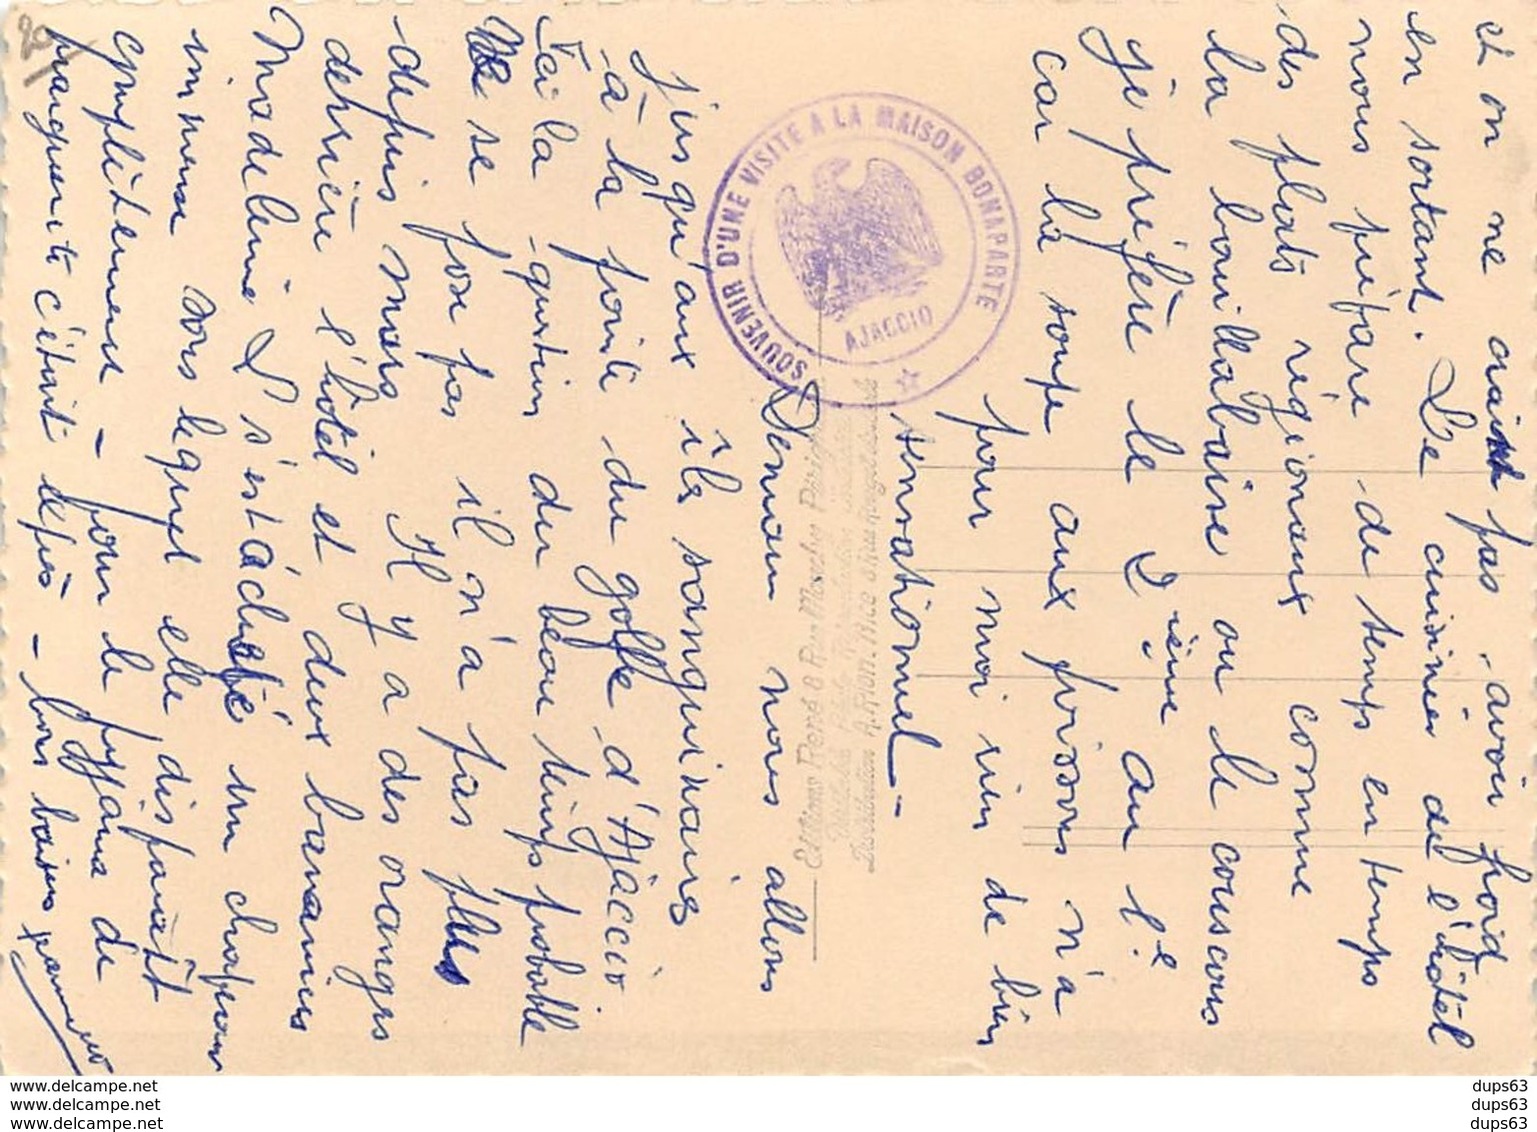 et on ne craint pas avoir froid
en sortant. Le cuisinier de l'hôtel
nous prépare de temps en temps
des plats régionaux comme
la bouillabaise ou le couscous
je préfère le 2ième au 1e
car la soupe aux poissons n'a
pour moi rien de bien
sensationnel -
Demain nous allons
jusqu'aux îls sanguinaires
à la pointe du golfe d'Ajaccio
J'ai la question du beau temps probable
Ne se pose pas il n'a pas plus
depuis mars Il y a des oranges
derrière l'hôtel et deux bananiers
Madeleine s'est acheté un chapeau
immense sous lequel elle disparaît
complètement - pour le pyjama de
c'était déjà - bons baisers
SOUVENIR D'UNE VISITE A LA MAISON BONAPARTE
AJACCIO
Editions René
www.delcampe.net dups63
www.delcampe.net dups63
www.delcampe.net dups63